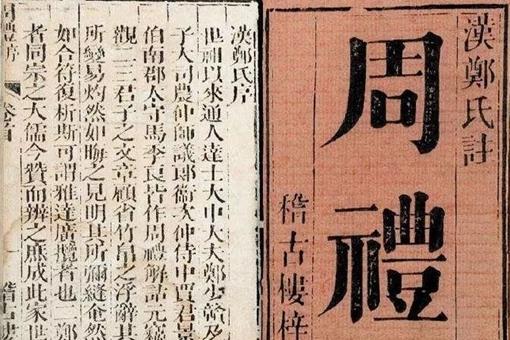 漢鄭氏註
周禮
稽古樓梓
漢鄭氏序
世祖以來通人達士大中大夫鄭少贛及
子大司農仲師議郎衛次仲侍中賈君景
伯南郡太守馬季長皆作周禮解詁元竊
觀二三君子之文章顧省竹帛之浮辭其
所變易灼然如晦之見明其所彌縫奄然
如合符復析斯可謂雅達廣攬者也二鄭
者同宗之大儒今贊而辨之庶成此家世
周禮序 卷首 一 稽古樓